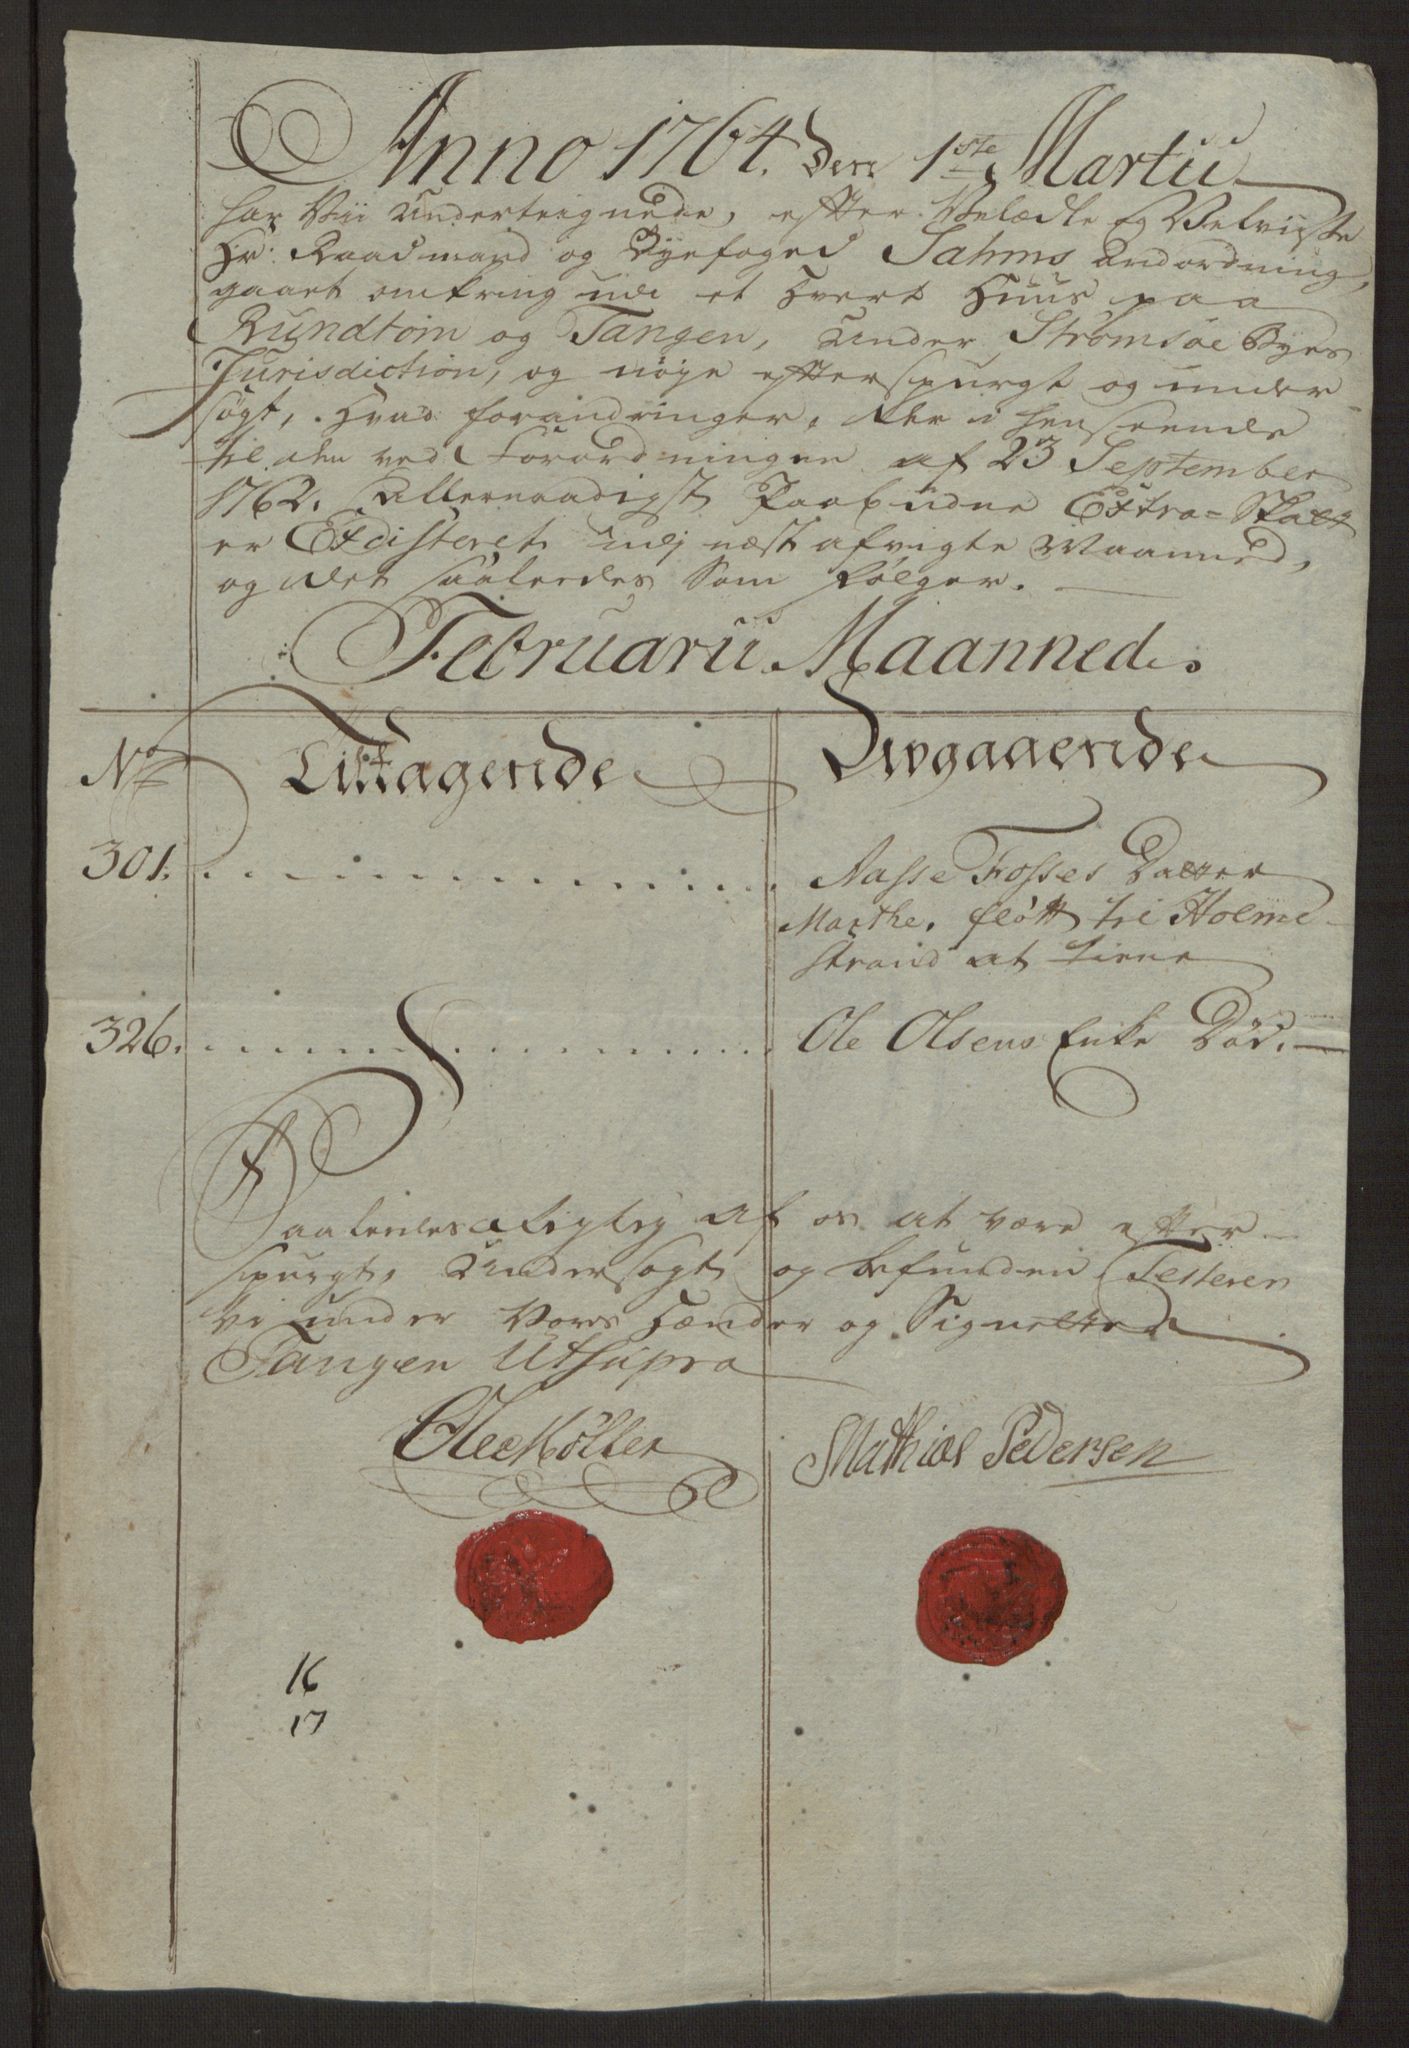 Anno 1764. den 1ste Martii
har Vii underteignede, efter Velædle og Velviiste
Hr: Raadmand og Byefoged Sahms Andordning,
gaaet omkring udi et hvert Huus paa
Rundtom og Tangen, under Strømsøe Byes
Jurisdiction, og nøye efterspurgt og under
søgt, hvad forandringer, der i henseende
til den ved Forordningen af 23 September
1762. allernaadigst Paabudne Extra-Skatt
er Exdisteret udj næst afvigte Maaned,
og det saaledes som følger.
Februarii Maanned.
No Tilltagende Avgaaende
301. Aasse Fosses Datter
Marthe, fløtt til Holme-
strand at tiene
326. Ole Olsens Enke Død.
Saaledes rigtig af os at være efter
spurgt, undersøgt og befunden Testerer
vi under Vores Hænder og Signetter
Tangen Ut supra
Ole Møller Mathias Pedersen
16
17